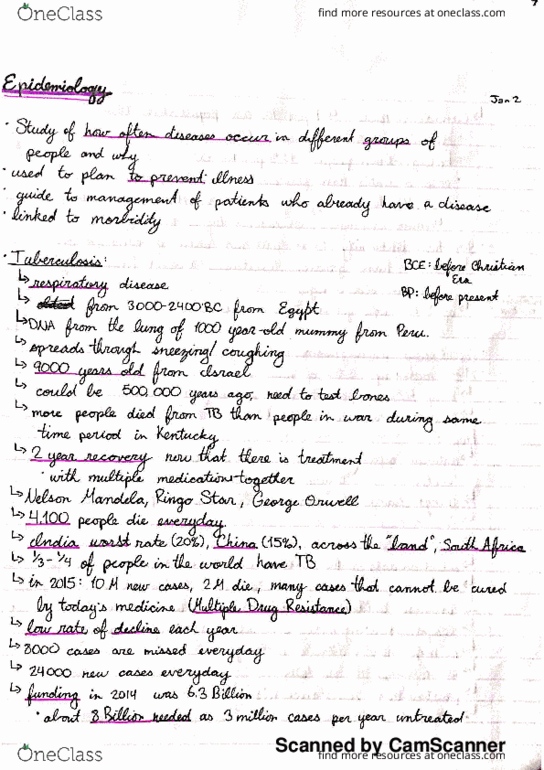 OneClass
find more resources at oneclass.com
Epidemiology
Jan 2
· Study of how often diseases occur in different groups of
people and why
· used to plan to prevent illness
· guide to management of patients who already have a disease
· linked to morbidity
· Tuberculosis:
BCE: before Christian
Era
↳ respiratory disease
BP: before present
↳ from 3000-2400 BC from Egypt
↳ DNA from the lung of 1000 year-old mummy from Peru.
↳ spreads through sneezing/coughing
↳ 9000 years old from Israel
↳ could be 500,000 years ago, need to test bones
↳ more people died from TB than people in war during same
time period in Kentucky
↳ 2 year recovery now that there is treatment
· with multiple medications together
↳ Nelson Mandela, Ringo Star, George Orwell
↳ 4,100 people die everyday
↳ India worst rate (20%), China (15%), across the "land", South Africa
↳ 1/3-1/4 of people in the world have TB
↳ in 2015: 10 M new cases, 2M die, many cases that cannot be cured
by today's medicine (Multiple Drug Resistance)
↳ low rate of decline each year
↳ 8000 cases are missed everyday
↳ 24000 new cases everyday
↳ funding in 2014 was 6.3 Billion
· about 8 Billion needed as 3 million cases per year untreated
Scanned by CamScanner
OneClass
find more resources at oneclass.com